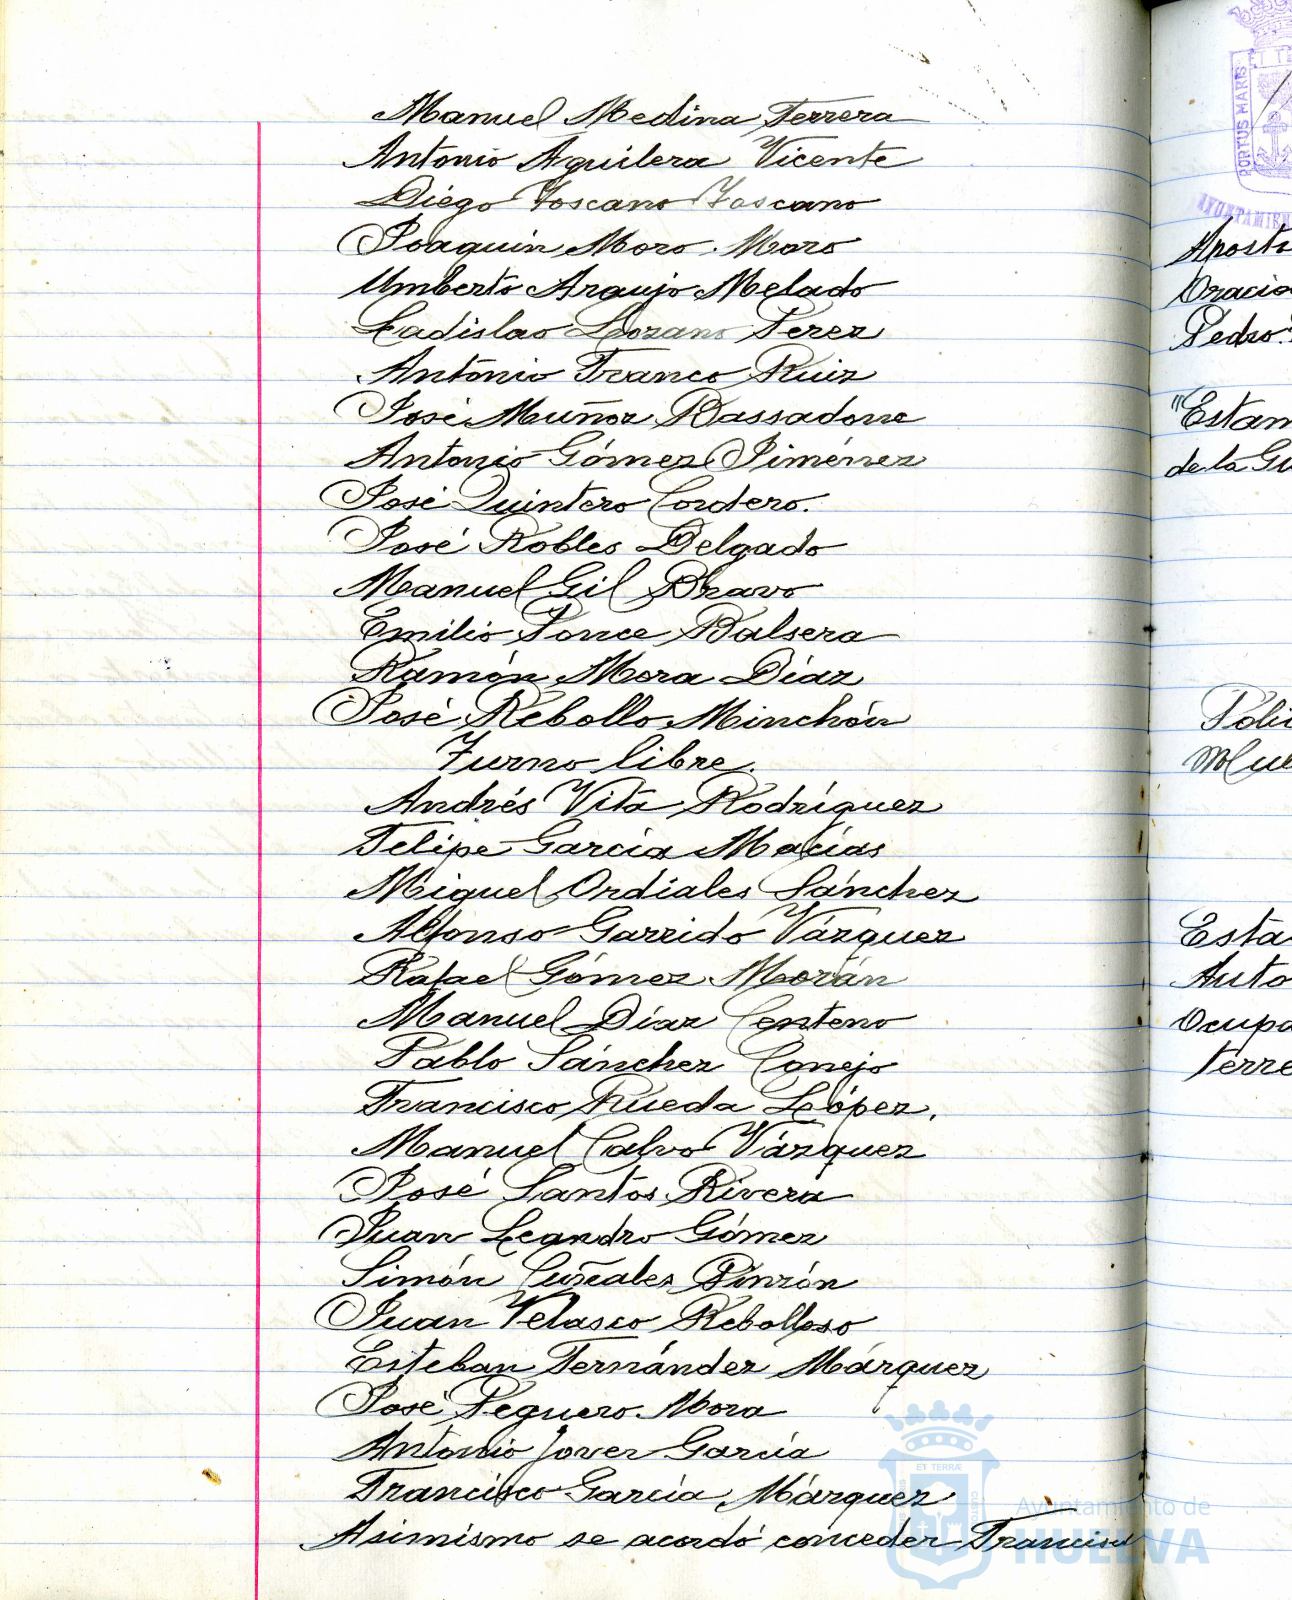 Manuel Medina Ferrera
Antonio Aguilera Vicente
Diego Toscano Toscano
Joaquín Moro Moro
Umberto Araujo Melado
Ladislao Lozano Perez
Antonio Franco Ruiz
José Muñoz Bassadone
Antonio Gómez Jiménez
José Quintero Cordero.
José Robles Delgado
Manuel Gil Bravo
Emilio Ponce Balsera
Ramón Mora Díaz
José Rebollo Minchón
Turno libre.
Andrés Vita Rodríguez
Felipe García Macías
Miguel Ordiales Sánchez
Alfonso Garrido Vázquez
Rafael Gómez Morán
Manuel Díaz Centeno
Pablo Sánchez Conejo
Francisco Rueda López.
Manuel Calvo Vázquez
José Santos Rivera
Juan Leandro Gómez
Simón Pinzón
Juan Velasco Rebolloso
Esteban Fernández Márquez
José Peguero Mora
Antonio Jover García
Francisco García Márquez
Asimismo se acordó conceder
Ayuntamiento de
HUELVA
ET TERRÆ
PORTUS MARIS
Pedro
"Estan
de la Gu
Esta
Auto
Ocupa
terre